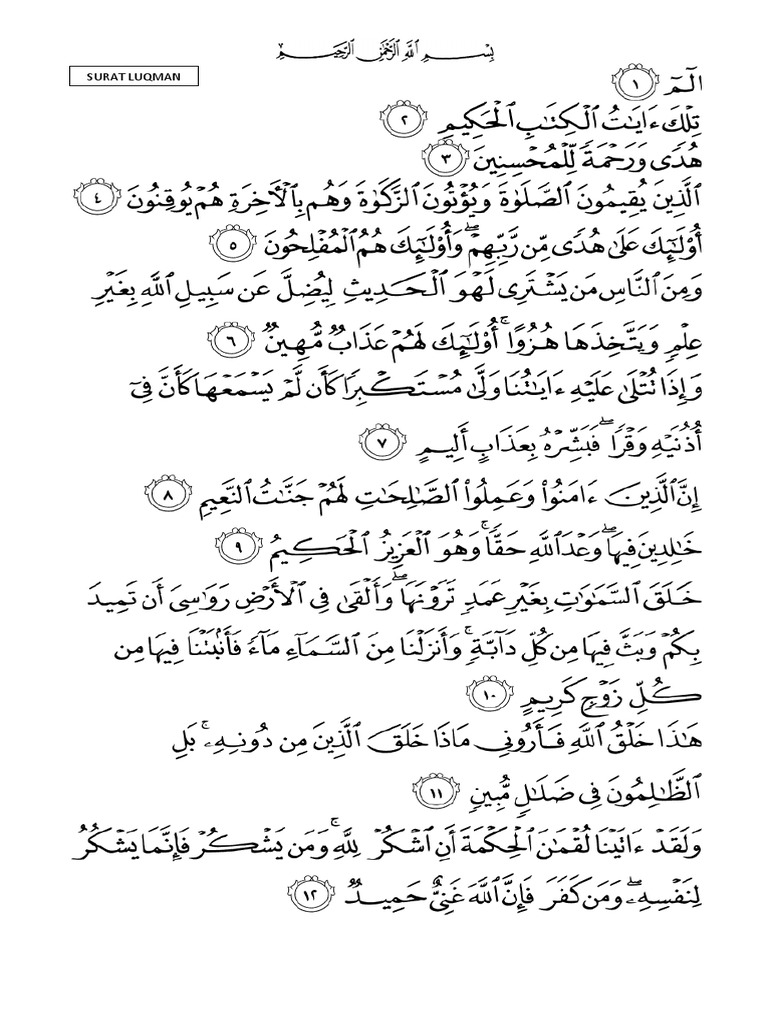 بِسْمِ اللَّهِ الرَّحْمَٰنِ الرَّحِيمِ
SURAT LUQMAN
الٓمٓ ١
تِلْكَ ءَايَٰتُ ٱلْكِتَٰبِ ٱلْحَكِيمِ ٢
هُدًى وَرَحْمَةً لِّلْمُحْسِنِينَ ٣
ٱلَّذِينَ يُقِيمُونَ ٱلصَّلَوٰةَ وَيُؤْتُونَ ٱلزَّكَوٰةَ وَهُم بِٱلْأَخِرَةِ هُمْ يُوقِنُونَ ٤
أُوْلَٰٓئِكَ عَلَىٰ هُدًى مِّن رَّبِّهِمْ ۖ وَأُوْلَٰٓئِكَ هُمُ ٱلْمُفْلِحُونَ ٥
وَمِنَ ٱلنَّاسِ مَن يَشْتَرِى لَهْوَ ٱلْحَدِيثِ لِيُضِلَّ عَن سَبِيلِ ٱللَّهِ بِغَيْرِ
عِلْمٍ وَيَتَّخِذَهَا هُزُوًا ۚ أُوْلَٰٓئِكَ لَهُمْ عَذَابٌ مُّهِينٌ ٦
وَإِذَا تُتْلَىٰ عَلَيْهِ ءَايَٰتُنَا وَلَّىٰ مُسْتَكْبِرًا كَأَن لَّمْ يَسْمَعْهَا كَأَنَّ فِىٓ
أُذُنَيْهِ وَقْرًا ۖ فَبَشِّرْهُ بِعَذَابٍ أَلِيمٍ ٧
إِنَّ ٱلَّذِينَ ءَامَنُوا۟ وَعَمِلُوا۟ ٱلصَّٰلِحَٰتِ لَهُمْ جَنَّٰتُ ٱلنَّعِيمِ ٨
خَٰلِدِينَ فِيهَا ۖ وَعْدَ ٱللَّهِ حَقًّا ۚ وَهُوَ ٱلْعَزِيزُ ٱلْحَكِيمُ ٩
خَلَقَ ٱلسَّمَٰوَٰتِ بِغَيْرِ عَمَدٍ تَرَوْنَهَا ۖ وَأَلْقَىٰ فِى ٱلْأَرْضِ رَوَٰسِىَ أَن تَمِيدَ
بِكُمْ وَبَثَّ فِيهَا مِن كُلِّ دَآبَّةٍ ۚ وَأَنزَلْنَا مِنَ ٱلسَّمَآءِ مَآءً فَأَنۢبَتْنَا فِيهَا مِن
كُلِّ زَوْجٍ كَرِيمٍ ١٠
هَٰذَا خَلْقُ ٱللَّهِ فَأَرُونِى مَاذَا خَلَقَ ٱلَّذِينَ مِن دُونِهِۦ ۚ بَلِ
ٱلظَّٰلِمُونَ فِى ضَلَٰلٍ مُّبِينٍ ١١
وَلَقَدْ ءَاتَيْنَا لُقْمَٰنَ ٱلْحِكْمَةَ أَنِ ٱشْكُرْ لِلَّهِ ۚ وَمَن يَشْكُرْ فَإِنَّمَا يَشْكُرُ
لِنَفْسِهِۦ ۖ وَمَن كَفَرَ فَإِنَّ ٱللَّهَ غَنِىٌّ حَمِيدٌ ١٢